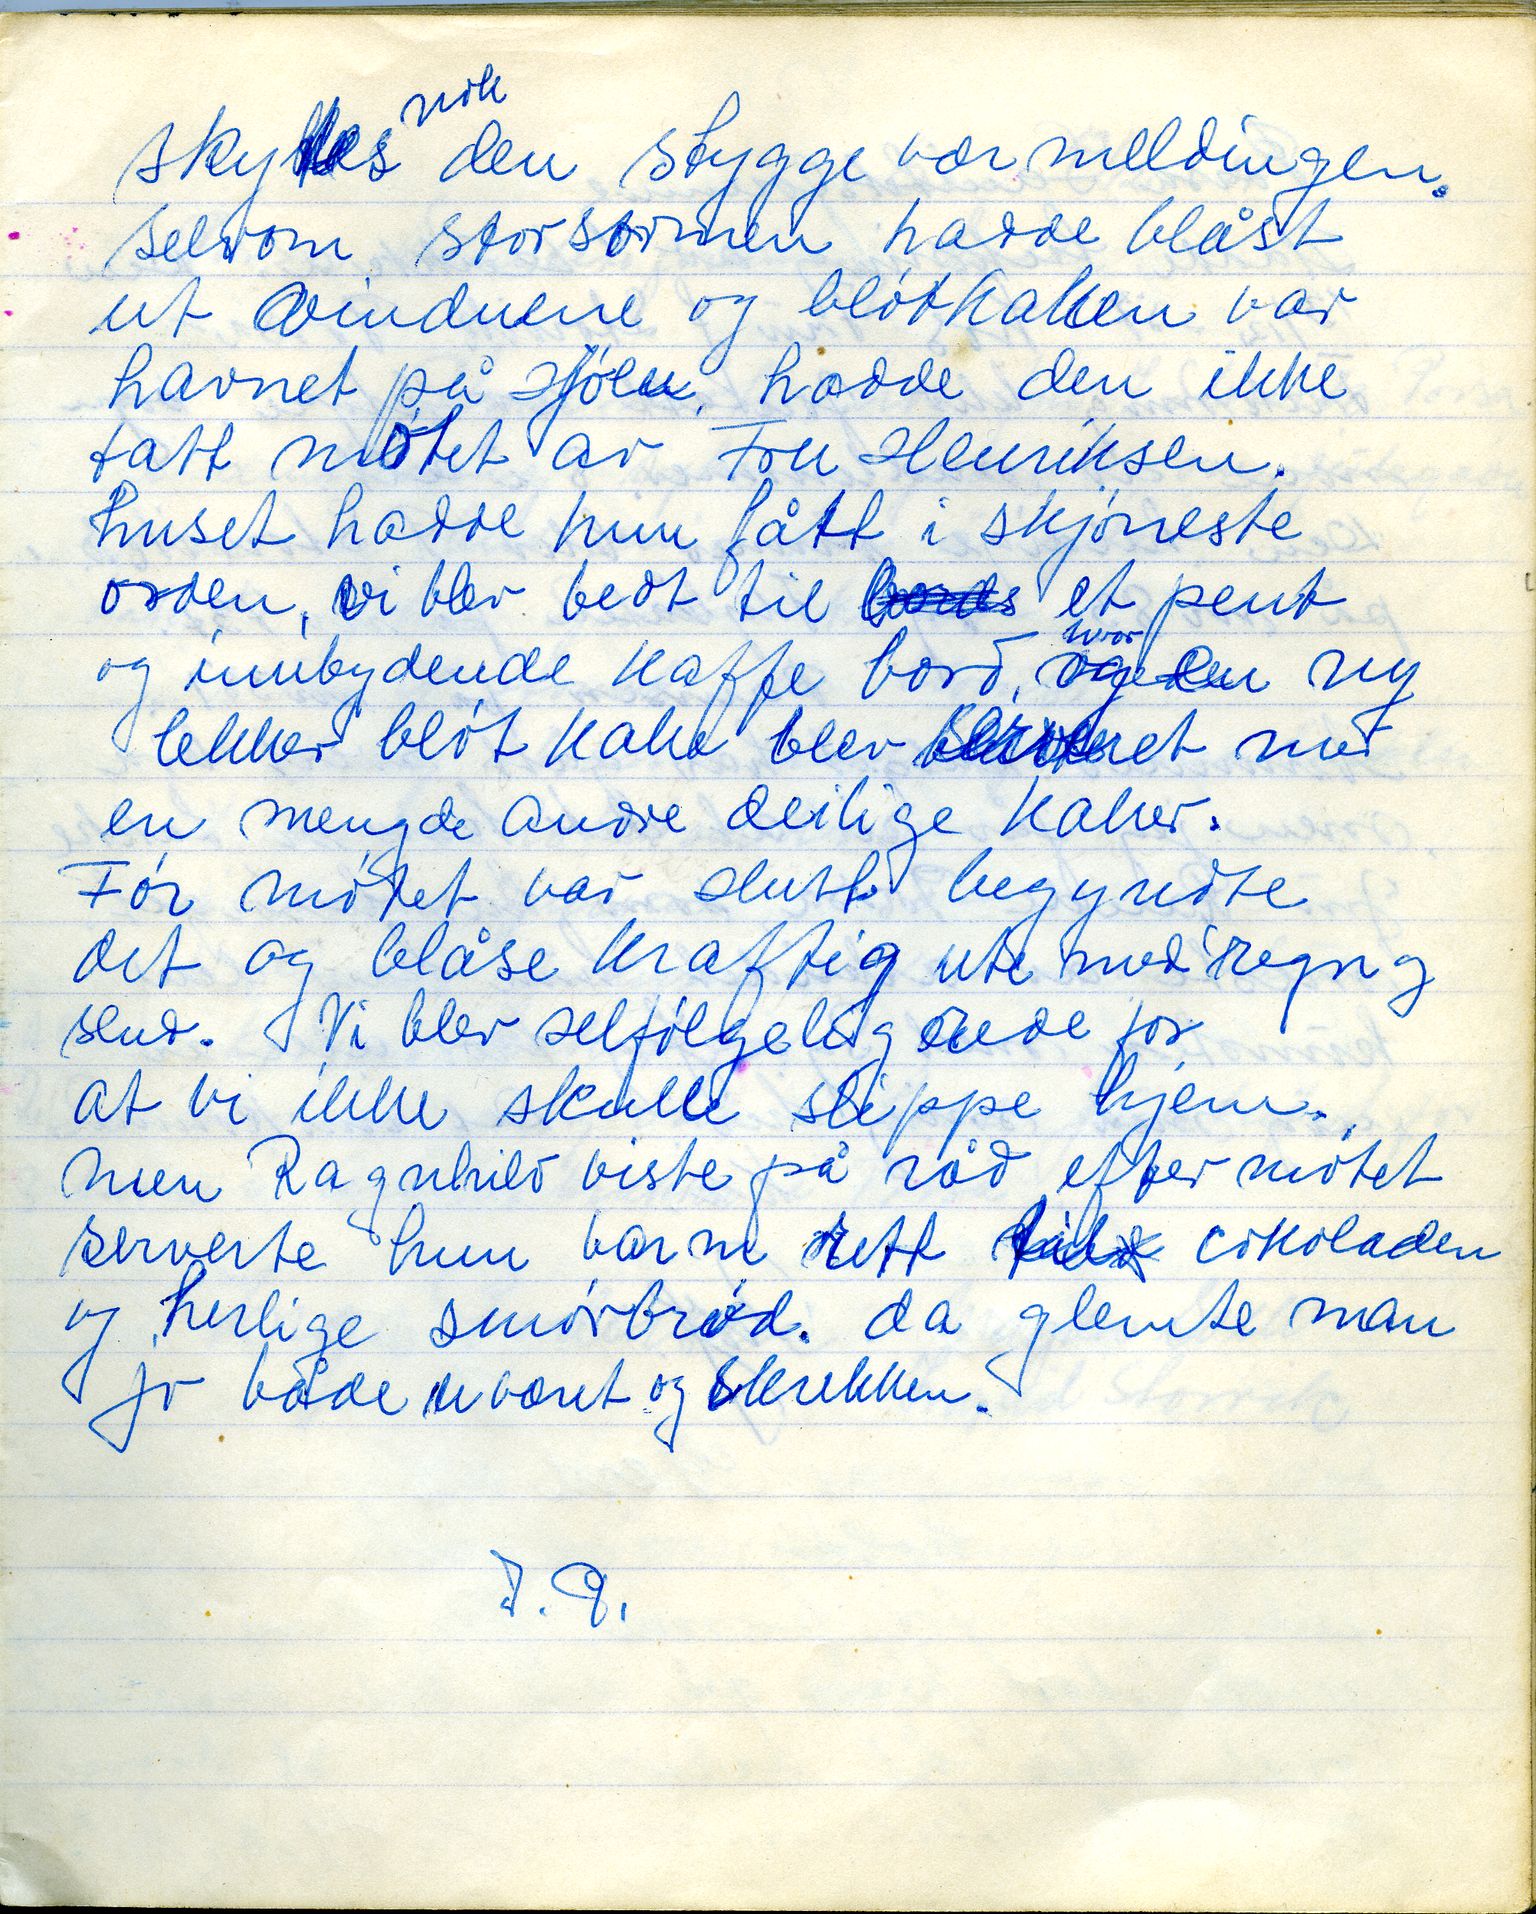 skyldes nok den stygge værmeldingen.
selvom storstormen hadde blåst
ut vinduene og bløtkaken var
havnet på Sjøen, hadde den ikke
tatt motet av Fru Henriksen.
huset hadde hun fått i skjønneste
orden, vi blev bedt til bords et pent
og innbydende kaffe bord, hvor en ny
lekker bløt kake blev servert med
en mengde andre deilige kaker.
Før møtet var slutt begyndte
det og blåse kraftig ute med regn og
slud. Vi blev selfølgelig redde for
at vi ikke skulle slippe hjem.
men Ragnhild viste på råd efter møtet
serverte hun varm rett cokoladen
og herlige smørbrød. da glemte man
jo både uværet og skrekken.